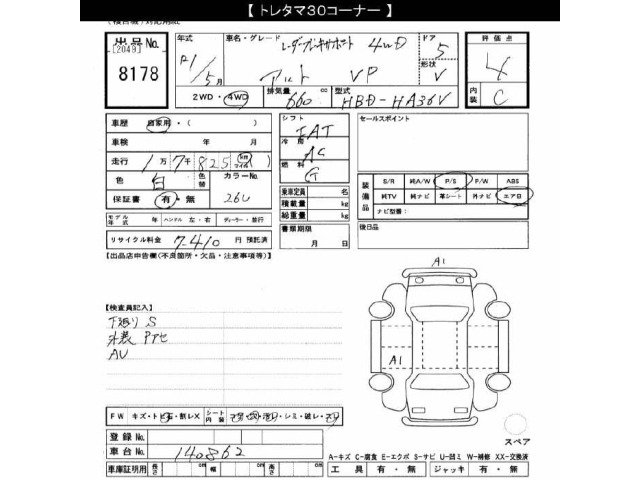 【 トレタマ30コーナー 】
出品No.
[2049]
8178
年式
R1/5月
車名・グレード
レーダーブレーキサポート 4WD
アルト VP
ドア
5
形状
V
評価点
4
内装
C
2WD・4WD
排気量
660 cc
型式
HBD-HA36V
車歴 自家用・( )
車検 年 月
走行 1万7千825 km マイル
色 白 色替 カラーNo. 26U
保証書 有・無
モデル年式 年 ハンドル 左・右 ディーラー・並行
リサイクル料金 7,410 円 預託済
シフト
FAT
冷房
AC
燃料
G
乗車定員 名
積載量 kg
総重量 kg
書類期限
月 日
セールスポイント
装備品
S/R 純A/W P/S P/W ABS
純TV 純ナビ 革シート 外ナビ エアB
ナビ型番:
後日品
【出品店申告欄(不良箇所・欠品・注意事項等)】
【検査員記入】
下廻り S
外装 PTセ
AU
A1
A1
スペア
FW キズ・トビ石・割レX シート内装
登録No.
車台No. 140862
車庫証明用 長さ cm 幅 cm 高さ cm
A-キズ C-腐食 E-エクボ S-サビ U-凹ミ W-補修 XX-交換済
工具 有・無 ジャッキ 有・無